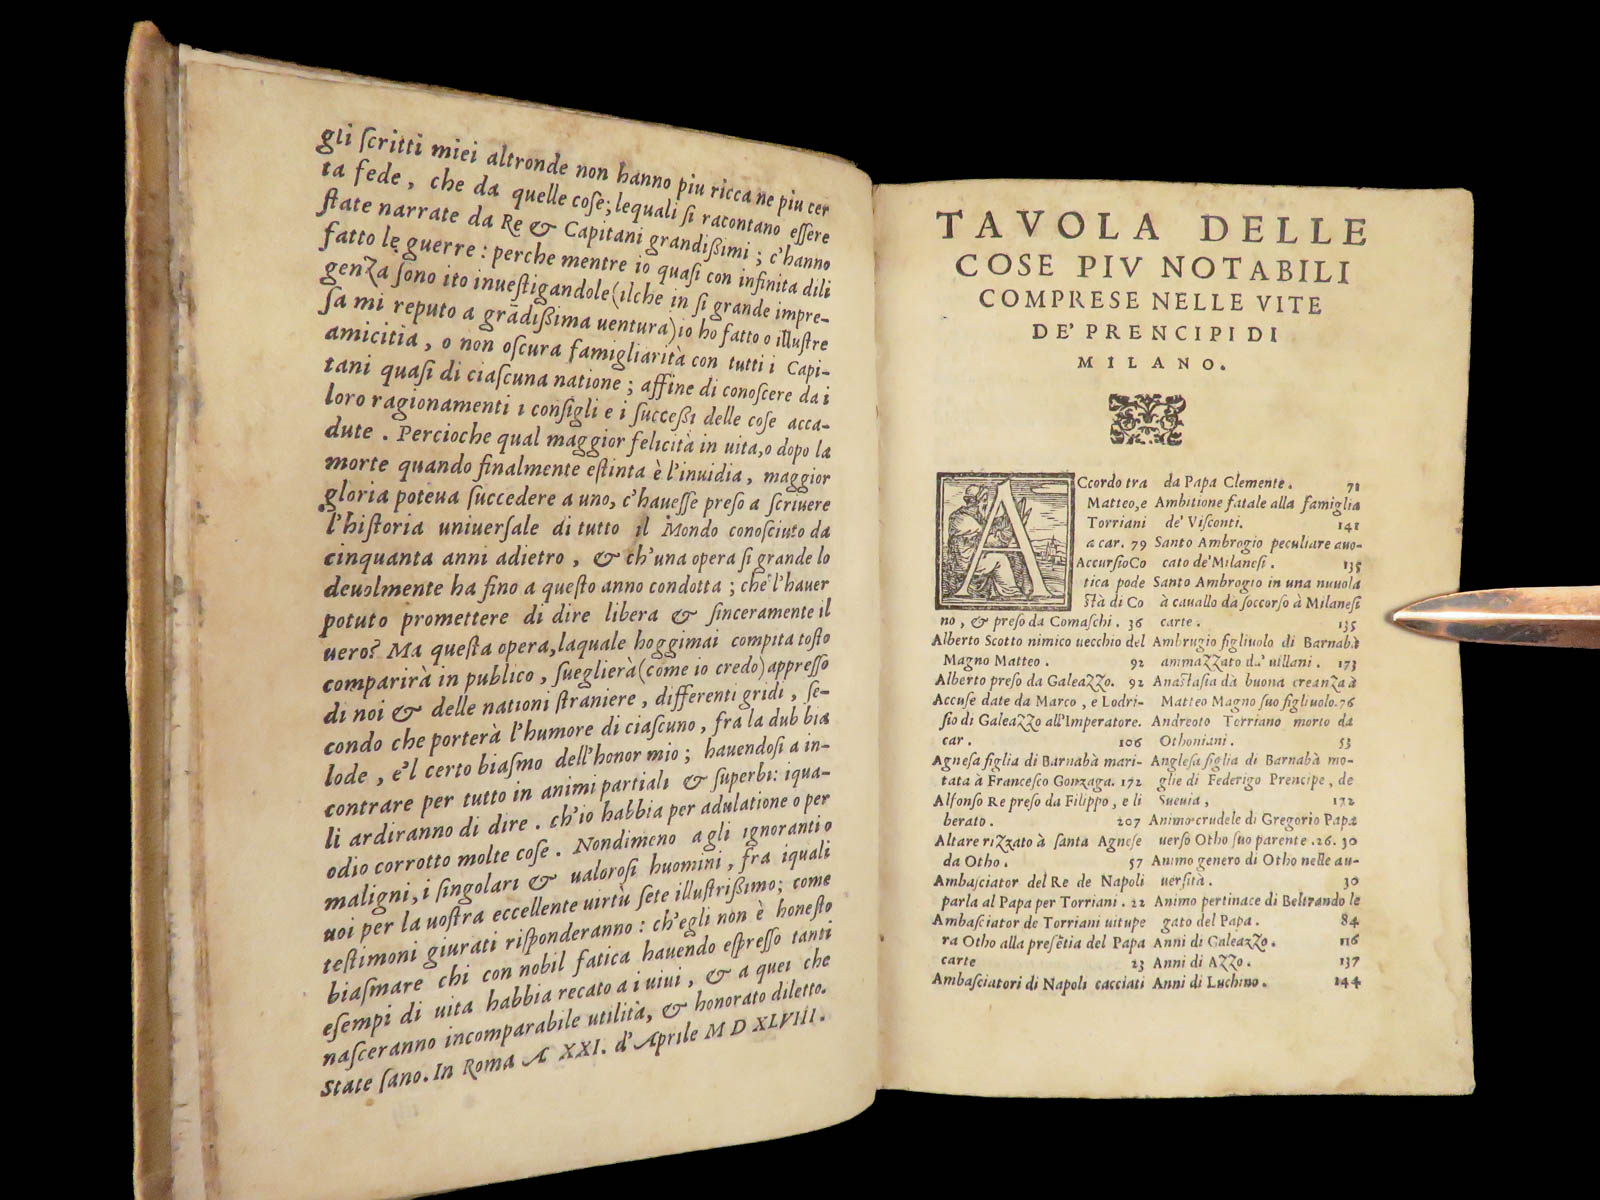 gli ſcritti miei altronde non hanno piu ricca ne piu cer
ta fede, che da quelle coſe; lequali ſi racontano eſſere
ſtate narrate da Re & Capitani grandißimi; c'hanno
fatto le guerre: perche mentre io quaſi con infinita dili
genza ſono ito inueſtigandole (ilche in ſi grande impre-
ſa mi reputo a grãdißima uentura) io ho fatto o illuſtre
amicitia, o non oſcura famigliarità con tutti i Capi-
tani quaſi di ciaſcuna natione; affine di conoſcere da i
loro ragionamenti i conſigli e i ſucceßi delle coſe acca-
dute. Percioche qual maggior felicità in uita, o dopo la
morte quando finalmente eſtinta è l'inuidia, maggior
gloria poteua ſuccedere a uno, c'haueſſe preſo a ſcriuere
l'hiſtoria uniuerſale di tutto il Mondo conoſciuto da
cinquanta anni adietro, & ch'una opera ſi grande lo
deuolmente ha fino a queſto anno condotta; che l'hauer
potuto promettere di dire libera & ſinceramente il
uero? Ma queſta opera, laquale hoggimai compita toſto
comparirà in publico, ſueglierà (come io credo) appreſſo
di noi & delle nationi ſtraniere, differenti gridi, ſe-
condo che porterà l'humore di ciaſcuno, fra la dubbia
lode, e'l certo biaſmo dell'honor mio; hauendoſi a in-
contrare per tutto in animi partiali & ſuperbi: iqua-
li ardiranno di dire. ch'io habbia per adulatione o per
odio corrotto molte coſe. Nondimeno a gli ignoranti o
maligni, i ſingolari & ualoroſi huomini, fra iquali
uoi per la uoſtra eccellente uirtù ſete illuſtrißimo; come
teſtimoni giurati riſponderanno: ch'egli non è honeſto
biaſmare chi con nobil fatica hauendo eſpreſſo tanti
eſempi di uita habbia recato a i uiui, & a quei che
naſceranno incomparabile utilità, & honorato diletto.
State ſano. In Roma A XXI. d'Aprile M D XLVIII.
TAVOLA DELLE
COSE PIV NOTABILI
COMPRESE NELLE VITE
DE' PRENCIPI DI
MILANO.
ACcordo tra
Matteo, e
Torriani
a car. 79
Accurſio Co
tica pode
ſtà di Co
no, & preſo da Comaſchi. 36
Alberto Scotto nimico uecchio del
Magno Matteo. 92
Alberto preſo da Galeazzo. 92
Accuſe date da Marco, e Lodri-
ſio di Galeazzo all'Imperatore.
car. 106
Agneſa figlia di Barnabà mari-
tata à Franceſco Gonzaga. 172
Alfonſo Re preſo da Filippo, e li
berato. 207
Altare rizzato à ſanta Agneſe
da Otho. 57
Ambaſciator del Re de Napoli
parla al Papa per Torriani. 22
Ambaſciator de Torriani uitupe
ra Otho alla preſẽtia del Papa
carte 23
Ambaſciatori di Napoli cacciati
da Papa Clemente. 71
Ambitione fatale alla famiglia
de' Viſconti. 141
Santo Ambrogio peculiare auo-
cato de' Milaneſi. 135
Santo Ambrogio in una nuuola
à cauallo dà ſoccorſo à Milaneſi
carte. 135
Ambrugio figliuolo di Barnabà
ammazzato da' uillani. 173
Anaſtaſia dà buona creanza à
Matteo Magno ſuo figliuolo. 76
Andreoto Torriano morto da
Othoniani. 53
Angleſa figlia di Barnabà mo-
glie di Federigo Prencipe, de
Sueuia, 172
Animo crudele di Gregorio Papa
uerſo Otho ſuo parente. 26. 30
Animo genero di Otho nelle au-
uerſità. 30
Animo pertinace di Beltrando le
gato del Papa. 84
Anni di Galeazzo. 116
Anni di Azzo. 137
Anni di Luchino. 144